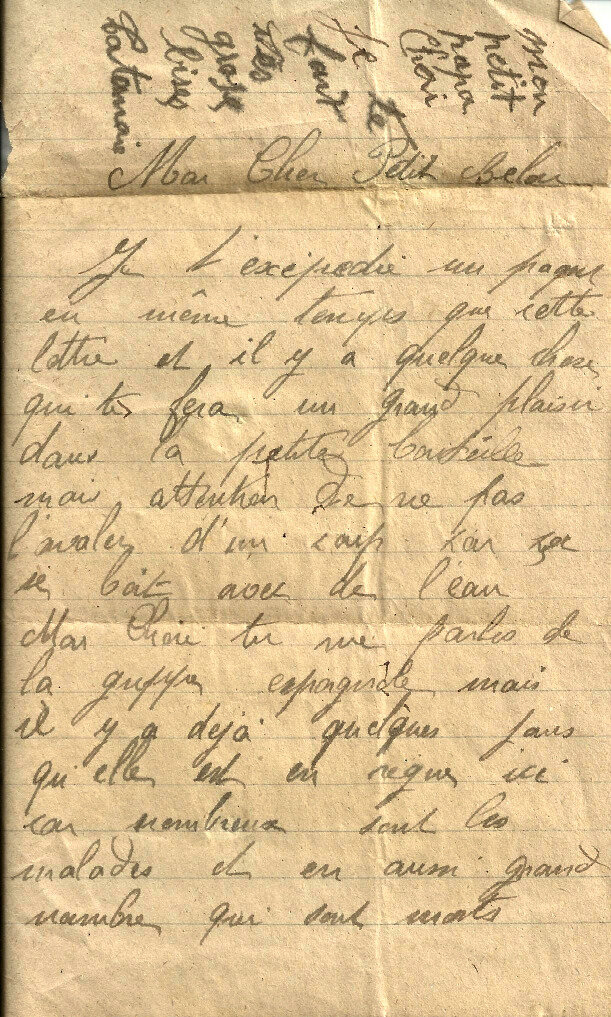 mon
petit
papa
Cheri
Je te
fait
des
grose
bises
Mon Cher Petit
Je t'excipedie un paque
en même temps que cette
lettre et il y a quelque chose
qui te fera un grand plaisir
dans la petite bouteille
mais attention de ne pas
l'avaler d'un coup car ça
se boit avec de l'eau
Mon Cheri tu me parles de
la grippe espagnole mais
il y a dejà quelques jours
qu'elle est en regne ici
car nombreux sont les
malades et en aussi grand
nombre qui sont morts